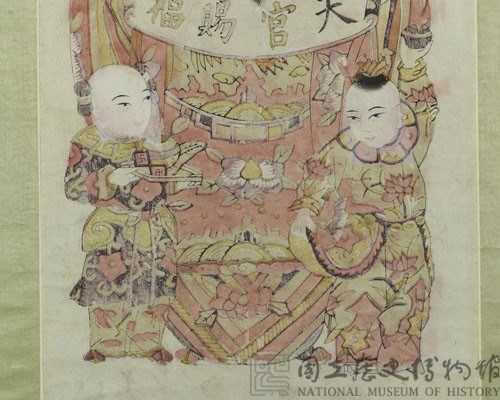 天官賜福
國立歷史博物館
NATIONAL MUSEUM OF HISTORY